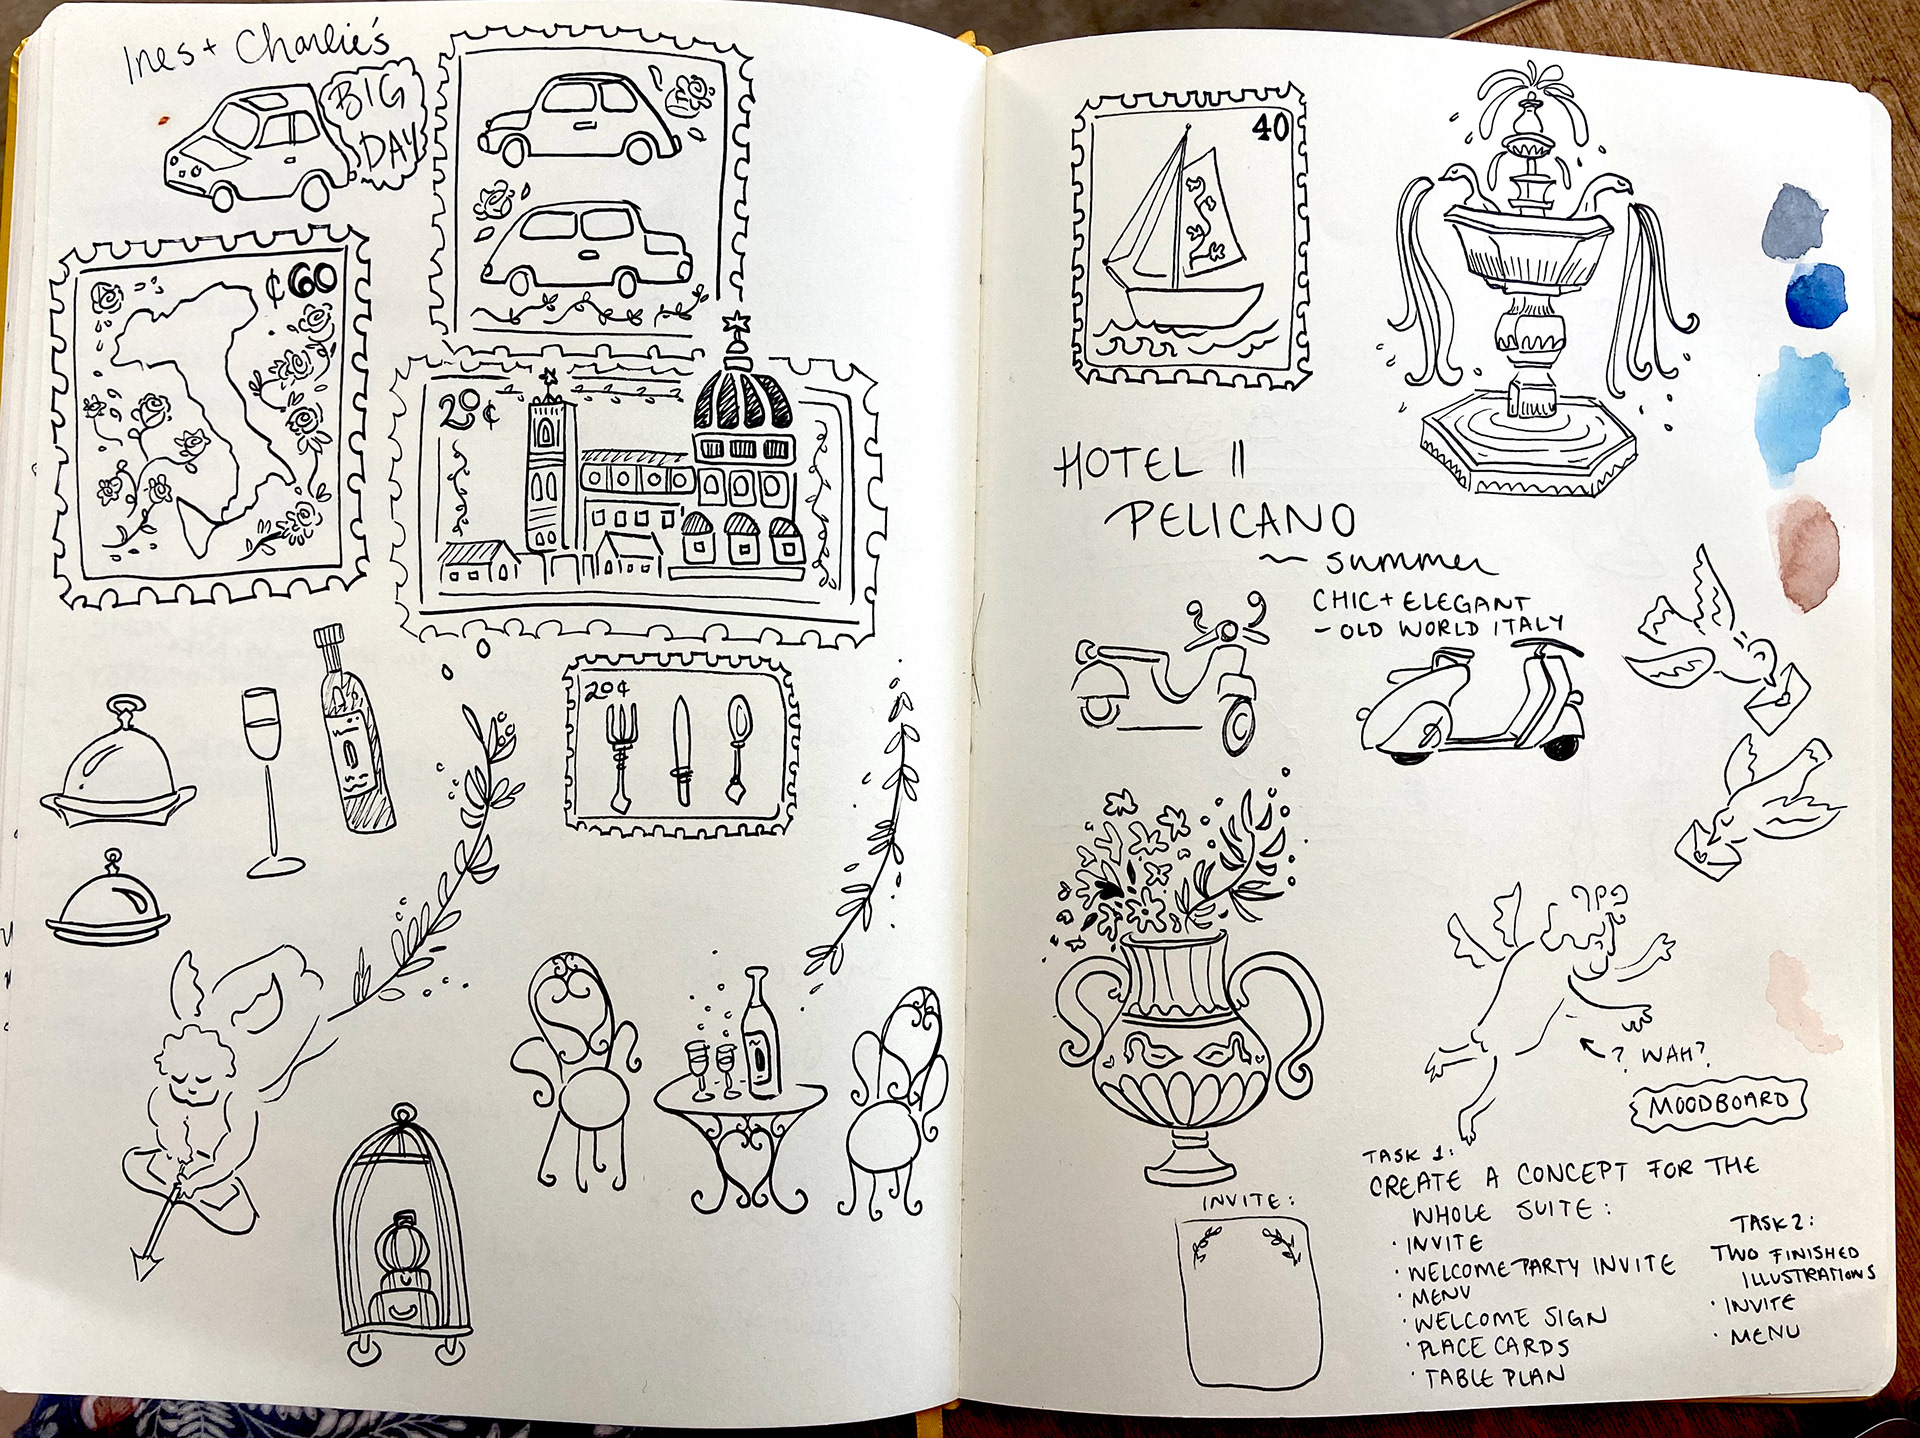 Ines + Charlie's
BIG
DAY
¢60
20¢
20¢
40
HOTEL Il
PELICANO
~ summer
CHIC + ELEGANT
- OLD WORLD ITALY
? WAH?
MOODBOARD
INVITE:
TASK 1:
CREATE A CONCEPT FOR THE
WHOLE SUITE:
· INVITE
· WELCOME PARTY INVITE
· MENU
· WELCOME SIGN
· PLACE CARDS
· TABLE PLAN
TASK 2:
TWO FINISHED
ILLUSTRATIONS
· INVITE
· MENU